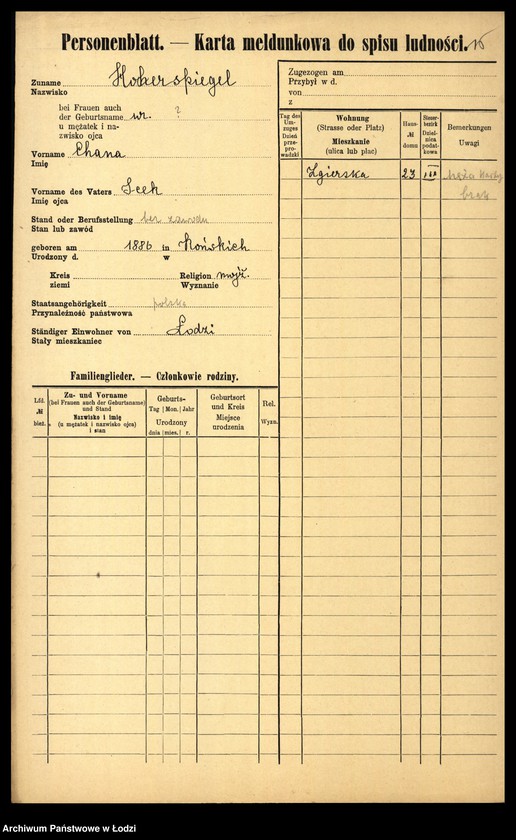 Personenblatt. — Karta meldunkowa do spisu ludności.
Zuname Hokerspiegel
Nazwisko
bei Frauen auch
der Geburtsname ur. ?
u mężatek i na-
zwisko ojca
Vorname Chana
Imię
Vorname des Vaters Seek
Imię ojca
Stand oder Berufsstellung bez zawodu
Stan lub zawód
geboren am 1886 in Końskich
Urodzony d. w
Kreis Religion mojż.
ziemi Wyznanie
Staatsangehörigkeit polska
Przynależność państwowa
Ständiger Einwohner von Łodzi
Stały mieszkaniec
Zugezogen am
Przybył w d.
von
z
Tag des Um-zuges
Dzień prze-pro-wadzki
Wohnung
(Strasse oder Platz)
Mieszkanie
(ulica lub plac)
Haus-
№
domu
Steuer-bezirk
Dziel-nica podat-kowa
Bemerkungen
Uwagi
Zgierska 23 III męża karty
brak
Familienglieder. — Członkowie rodziny.
Lfd.
№
bież.
Zu- und Vorname
(bei Frauen auch der Geburtsname)
und Stand
Nazwisko i imię
(u mężatek i nazwisko ojca)
i stan
Geburts-
Tag | Mon. | Jahr
Urodzony
dnia | mies. | r.
Geburtsort
und Kreis
Miejsce
urodzenia
Rel.
Wyzn.
Archiwum Państwowe w Łodzi